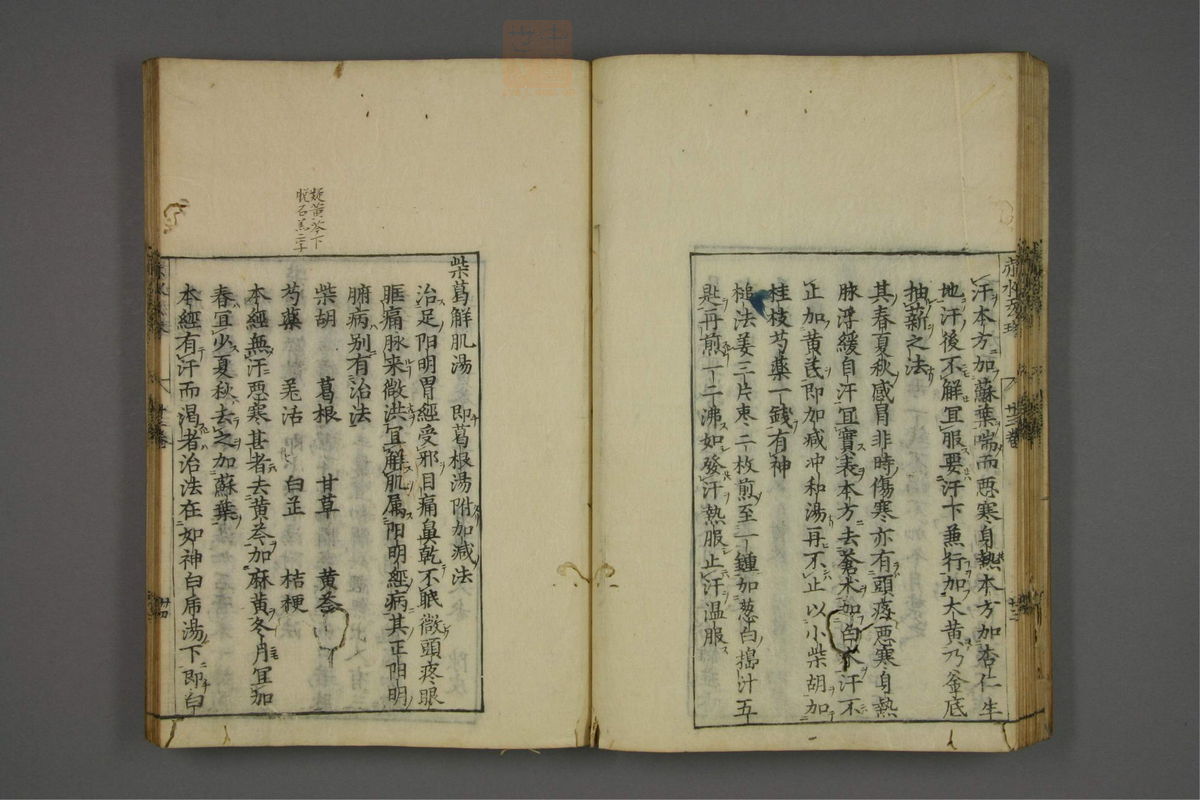 汗本方加蘇葉喘而悪寒身熱本方加杏仁生
地汗後不解宜服要汗下兼行加大黄乃釜底
抽薪之法
其春夏秋感冒非時傷寒亦有頭疼悪寒身熱
脉浮緩自汗宜實表本方去蒼术加白术汗不
止加黄芪即加减冲和湯再不止以小柴胡加
桂枝芍藥一錢有神
槌法姜三片枣二枚煎至一鍾加葱白搗汁五
匙再煎一二沸如發汗熱服止汗温服
柴葛解肌湯 即葛根湯附加减法
治足阳明胃經受邪目痛鼻乾不眠微頭疼眼
眶痛脉来微洪宜解肌属阳明經病其正阳明
腑病别有治法
柴胡 葛根 甘草 黄芩
芍藥 羌活 白芷 桔梗
本經無汗悪寒甚者去黄芩加麻黄冬月宜加
春宜少夏秋去之加蘇葉
本經有汗而渴者治法在如神白乕湯下即白
疑黄芩下
脱石羔二字